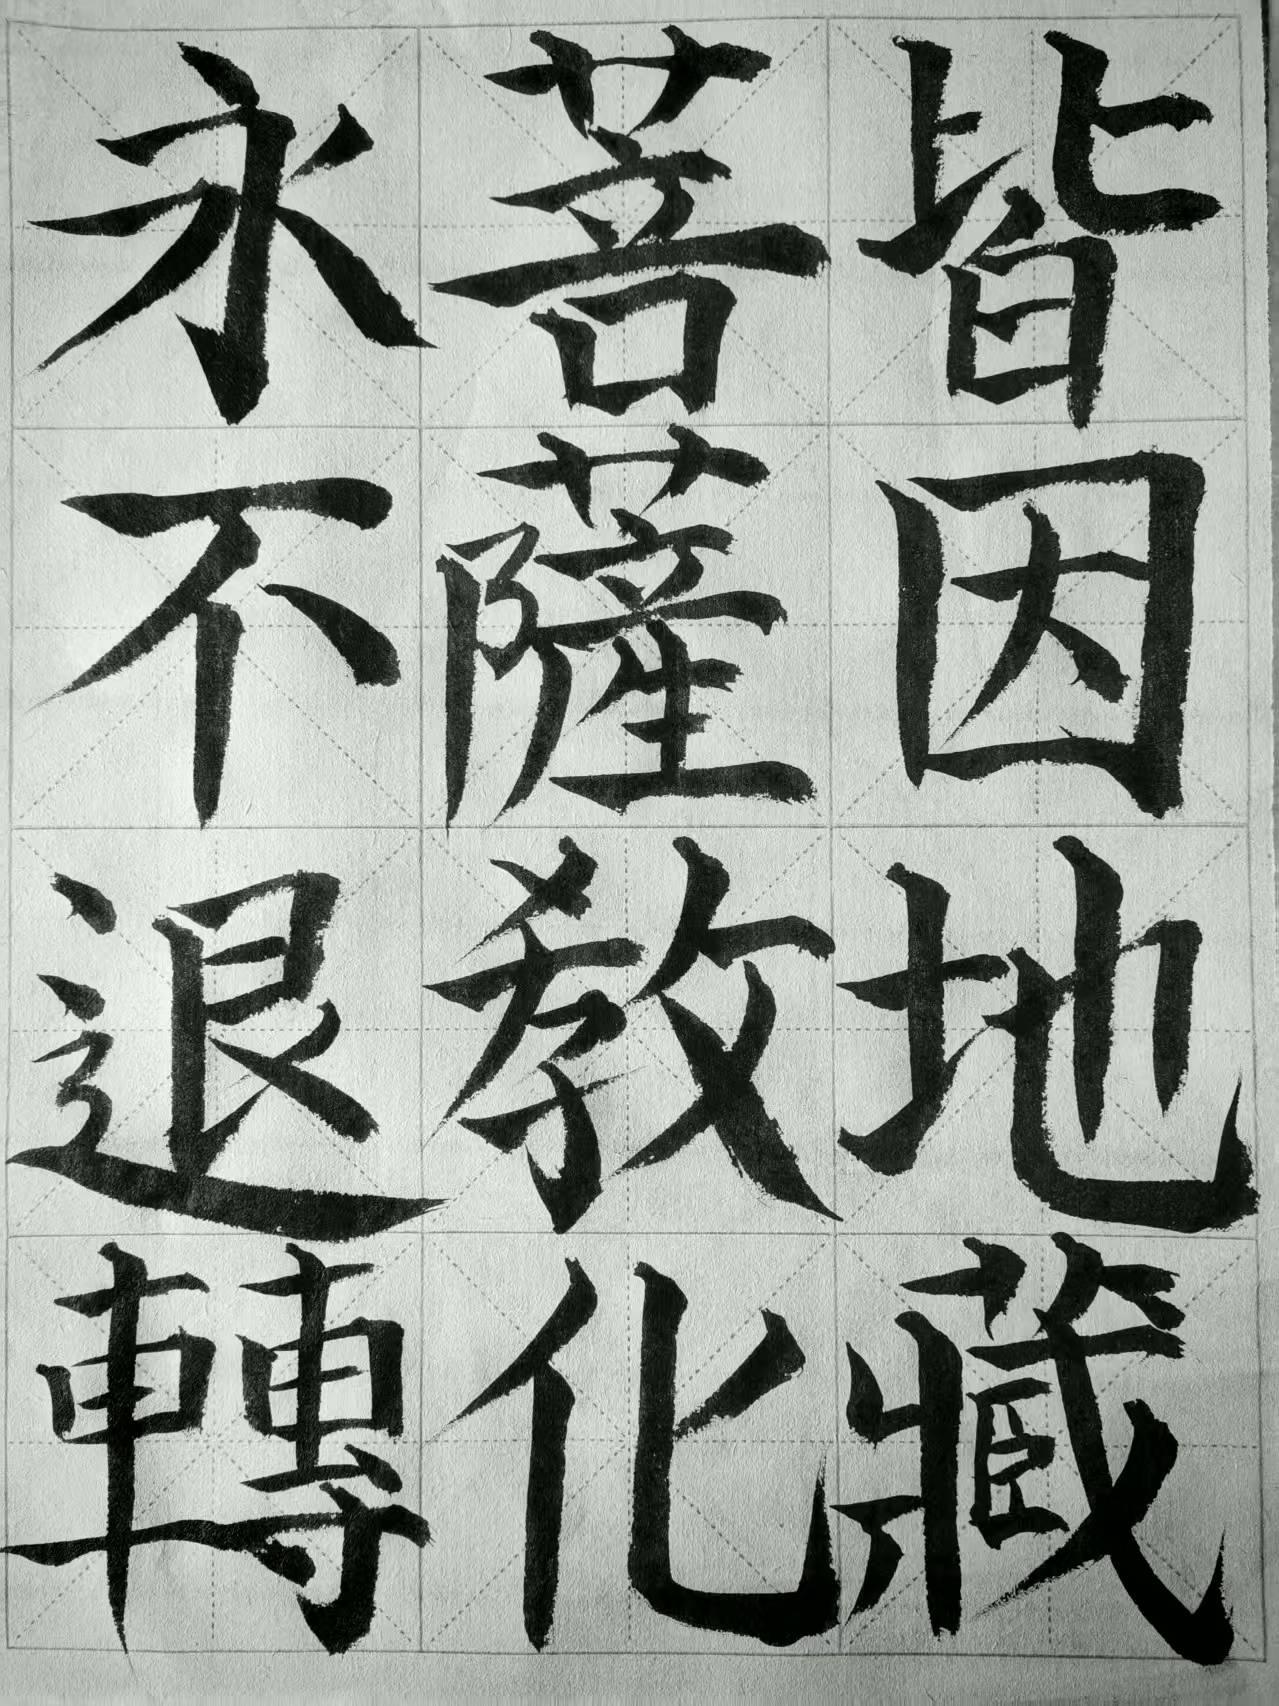 皆因地藏
菩薩教化
永不退轉